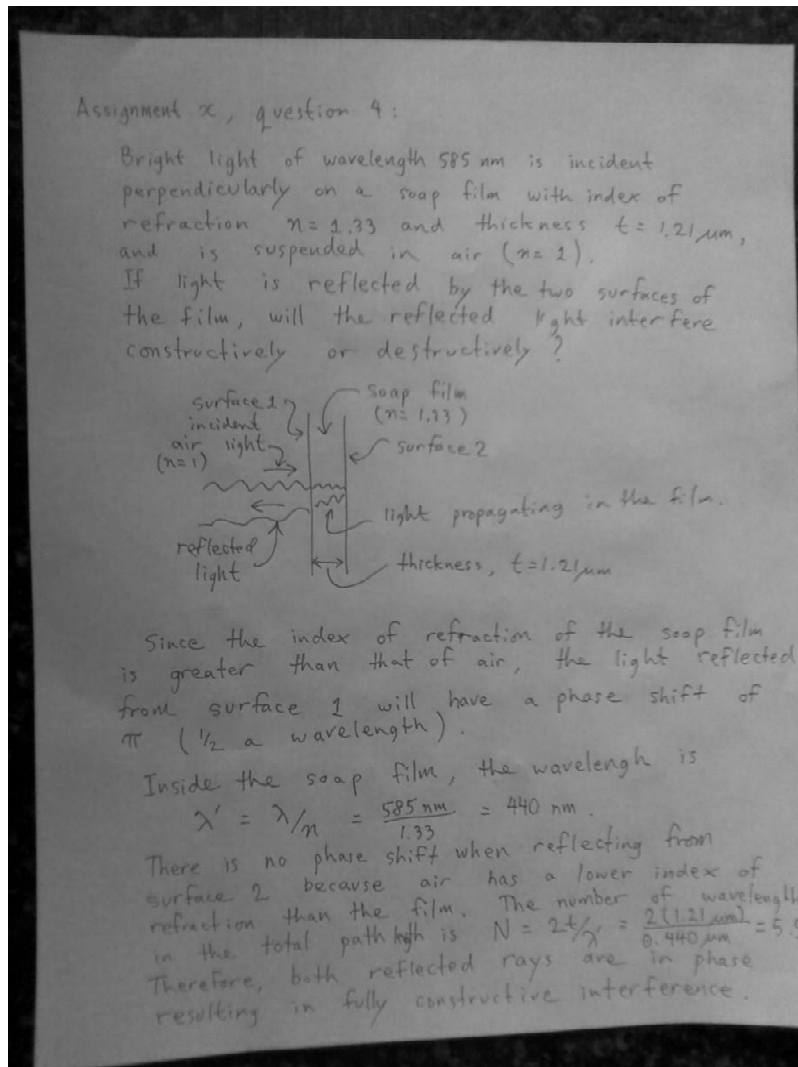 Assignment x, question 4:
Bright light of wavelength 585 nm is incident
perpendicularly on a soap film with index of
refraction n = 1.33 and thickness t = 1.21 μm,
and is suspended in air (n = 1).
If light is reflected by the two surfaces of
the film, will the reflected light interfere
constructively or destructively?
surface 1
incident
air light
(n=1)
soap film
(n = 1.33)
surface 2
light propagating in the film.
reflected
light
thickness, t = 1.21 μm
Since the index of refraction of the soap film
is greater than that of air, the light reflected
from surface 1 will have a phase shift of
π (1/2 a wavelength).
Inside the soap film, the wavelengh is
λ' = λ/n = 585 nm / 1.33 = 440 nm.
There is no phase shift when reflecting from
surface 2 because air has a lower index of
refraction than the film. The number of wavelength
in the total path is N = 2t/λ' = 2(1.21 μm) / 0.440 μm = 5.
Therefore, both reflected rays are in phase
resulting in fully constructive interference.